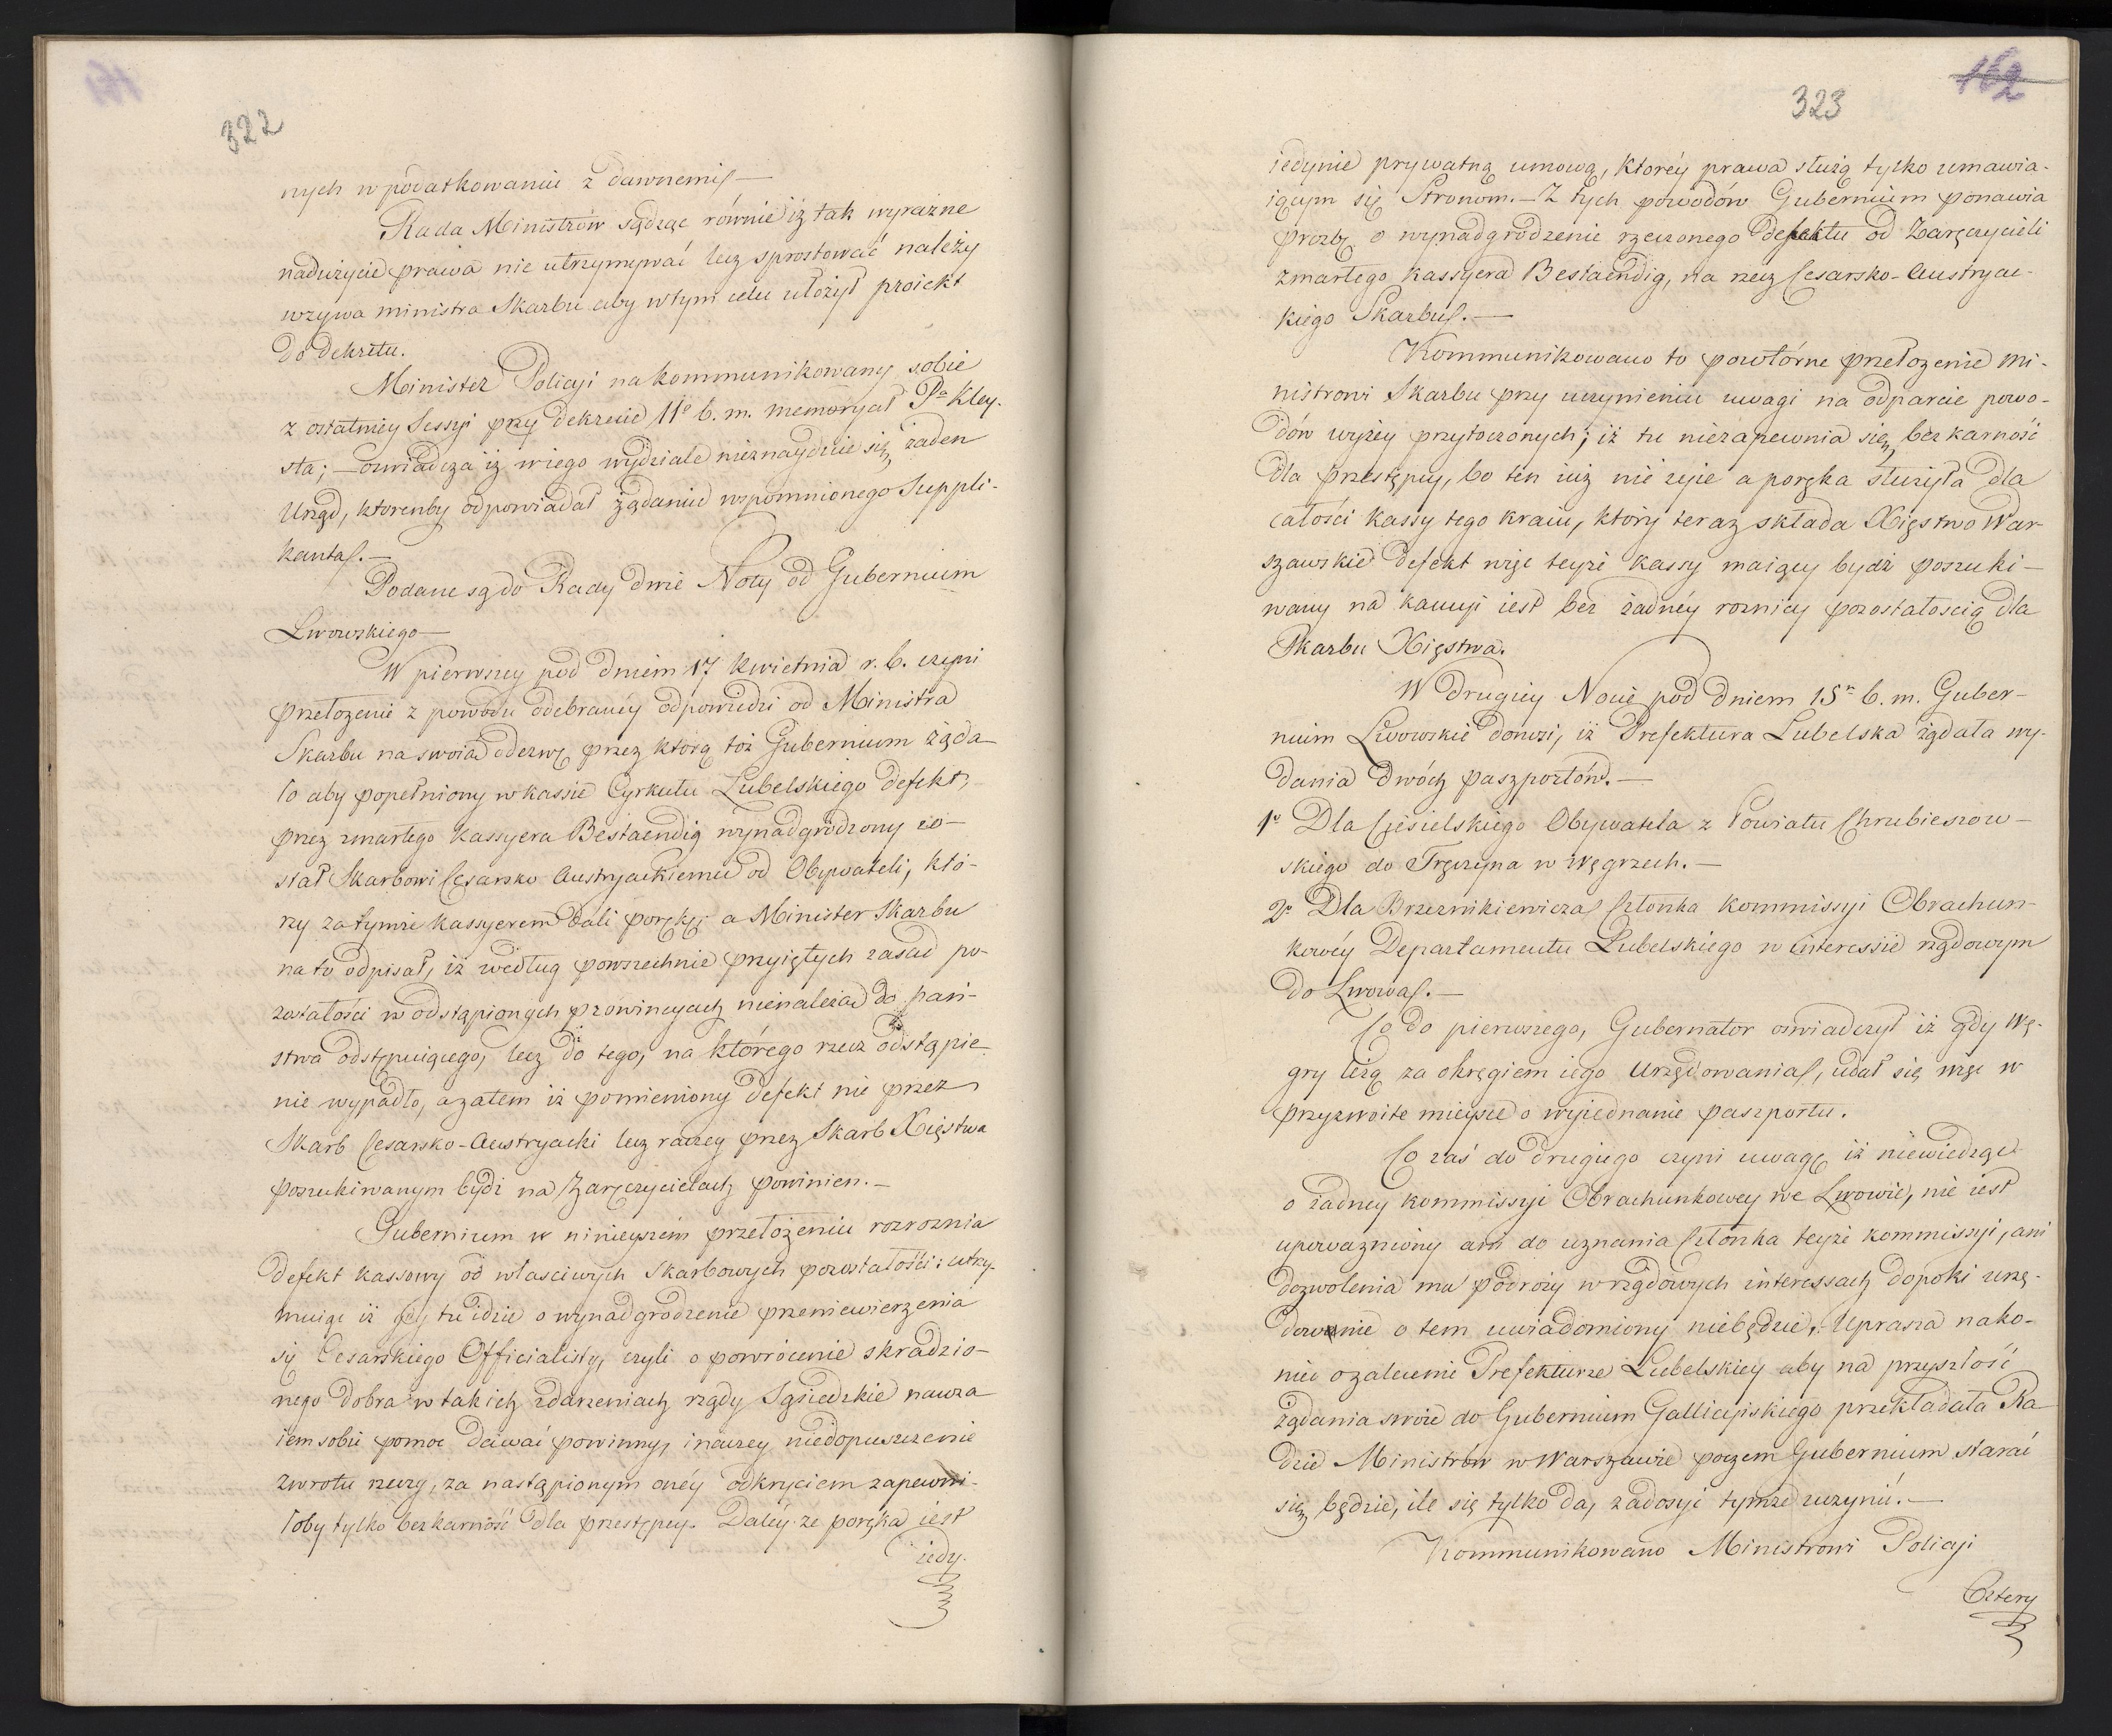 322
nych w podatkowaniu z dawnemi —
Rada Ministrów sądząc równie iż tak wyrazne
nadużycie prawa nie utrzymywać lecz sprostować należy
wzywa ministra Skarbu aby w tym celu ułożył proiekt
do dekretu.
Minister Policyi na kommunikowany sobie
z ostatniey Sessyi przy dekrecie 11º b. m. memoryał Pª Kley-
sta; — oswiadcza iż w iego wydziale nieznayduie się żaden
Urząd, ktorenby odpowiadał żądaniu wspomnionego Suppli-
kanta. —
Podane są do Rady dwie Noty od Gubernium
Lwowskiego —
W pierwszey pod dniem 17 Kwietnia r. b. czyni
przełozenie z powodu odebraney odpowiedzi od Ministra
Skarbu na swoią odezwę przez ktorą toż Gubernium żąda-
ło aby popełniony w kassie Cyrkułu Lubelskiego defekt,
przez zmarłego Kassyera Bestaendig wynadgrodzony zo-
stał Skarbowi Cesarsko Austryackiemu od Obywateli, któ-
rzy za tymże Kassyerem dali porękę; a Minister Skarbu
na to odpisał, iż według powszechnie przyiętych zasad po-
zostałości w odstąpionych prowincyach nienależą do pań-
stwa odstępuiącego, lecz do tego, na którego rzecz odstąpie-
nie wypadło, a zatem iż pomieniony defekt nie przez
Skarb Cesarsko-Austryacki lecz raczey przez Skarb Xięstwa
poszukiwanym bydź na Zaręczycielach powinien. —
Gubernium w ninieyszém przełożeniu rozroznia
defekt kassowy od własciwych Skarbowych pozostałości: utrzy-
muiąc iż tu idzie o wynadgrodzenie przeniewierzenia
się Cesarskiego Officialisty, czyli o powrócenie skradzio-
nego dobra w takich zdarzeniach rządy Sąsiedzkie nawza-
iem sobie pomoc dawać powinny, inaczey niedopuszczenie
zwrotu rzeczy, za nastąpionym onéy odkryciem zapewni-
łoby tylko bezkarność dla przestępcy. Daléy ze poręka iest
iedy-
162
323
iedynie prywatną umową, ktoréy prawa służą tylko umawia-
iącym się Stronom. — Z tych powodów Gubernium ponawia
prozbę o wynadgrodzenie rzeczonego defektu od Zaręczycieli
zmarłego Kassyera Bestaendig, na rzecz Cesarsko-Austryac-
kiego Skarbu. —
Kommunikowano to powtórne przełozenie Mi-
nistrowi Skarbu przy uczynieniu uwagi na odparcie powo-
dów wyżey przytoczonych; iż tu niezapewnia się bezkarność
dla przestępcy, bo ten iuż nie żyie a poręka służyła dla
całości Kassy tego kraiu, który teraz składa Xięstwo War-
szawskie defekt więc teyże Kassy maiący bydź poszuki-
wany na kaucyi iest bez żadnéy roznicy pozostałoscią dla
Skarbu Xięstwa.
W drugiey Nocie pod dniem 15ⁿ b. m. Guber-
nium Lwowskie donosi, iż Prefektura Lubelska żądała wy-
dania dwóch paszportów. —
1º Dla Ciesielskiego Obywatela z Powiatu Chrubieszow-
skiego do Tręczyna w Węgrzech. —
2º Dla Brzeznikiewicza Członka Kommissyi Obrachun-
kowéy Departamentu Lubelskiego w interessie rządowym
do Lwowa. —
Co do pierwszego, Gubernator oswiadczył iż gdy Wę-
gry leżą za okręgiem iego Urzędowania, udał się więc w
przyzwoite mieysce o wyiednanie paszportu.
Co zaś do drugiego czyni uwagę iż niewiedząc
o żadney Kommissyi Obrachunkowey we Lwowie, nie iest
upowazniony ani do uznania Członka teyże Kommissyi, ani
dozwolenia mu podroży w rządowych interessach dopoki urzę-
downie o tem uwiadomiony niebędzie. Uprasza nako-
niec o zalecenie Prefekturze Lubelskiey aby na przyszłość
żądania swoie do Gubernium Gallicyiskiego przekładała Ra-
dzie Ministrów w Warszawie poczem Gubernium starać
się będzie, ile się tylko da, zadosyć tymże uczynić. —
Kommunikowano Ministrowi Policyi
Cztery